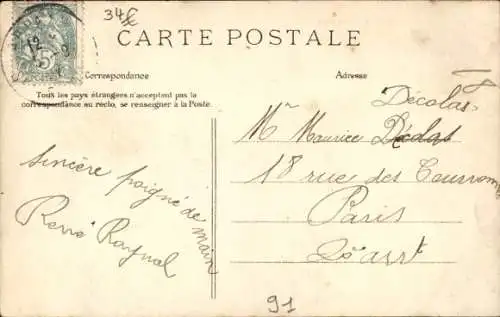 34£
CARTE POSTALE
Correspondance
Adresse
Tous les pays étrangers n'acceptent pas la
correspondance au recto, se renseigner à la Poste.
Décolas
Mr Maurice Décolas
18 rue des
Paris
arrt
Sincère poigné de main
Raynal
91